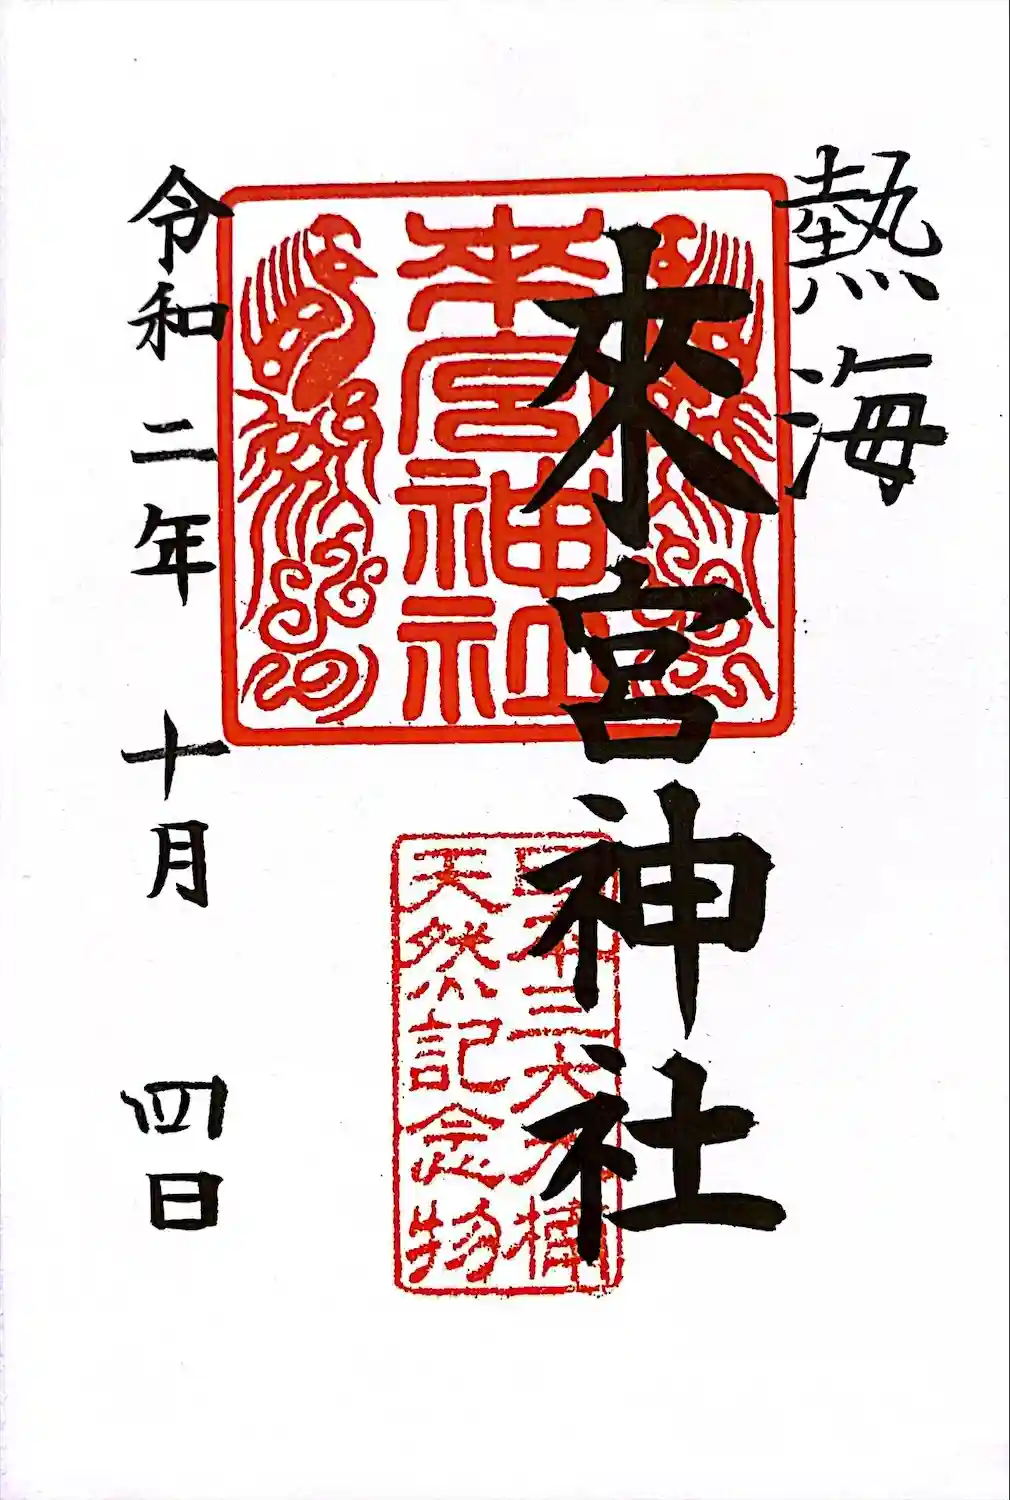 熱海
來宮神社
来宮神社
日本三大大楠
天然記念物
令和二年十月四日